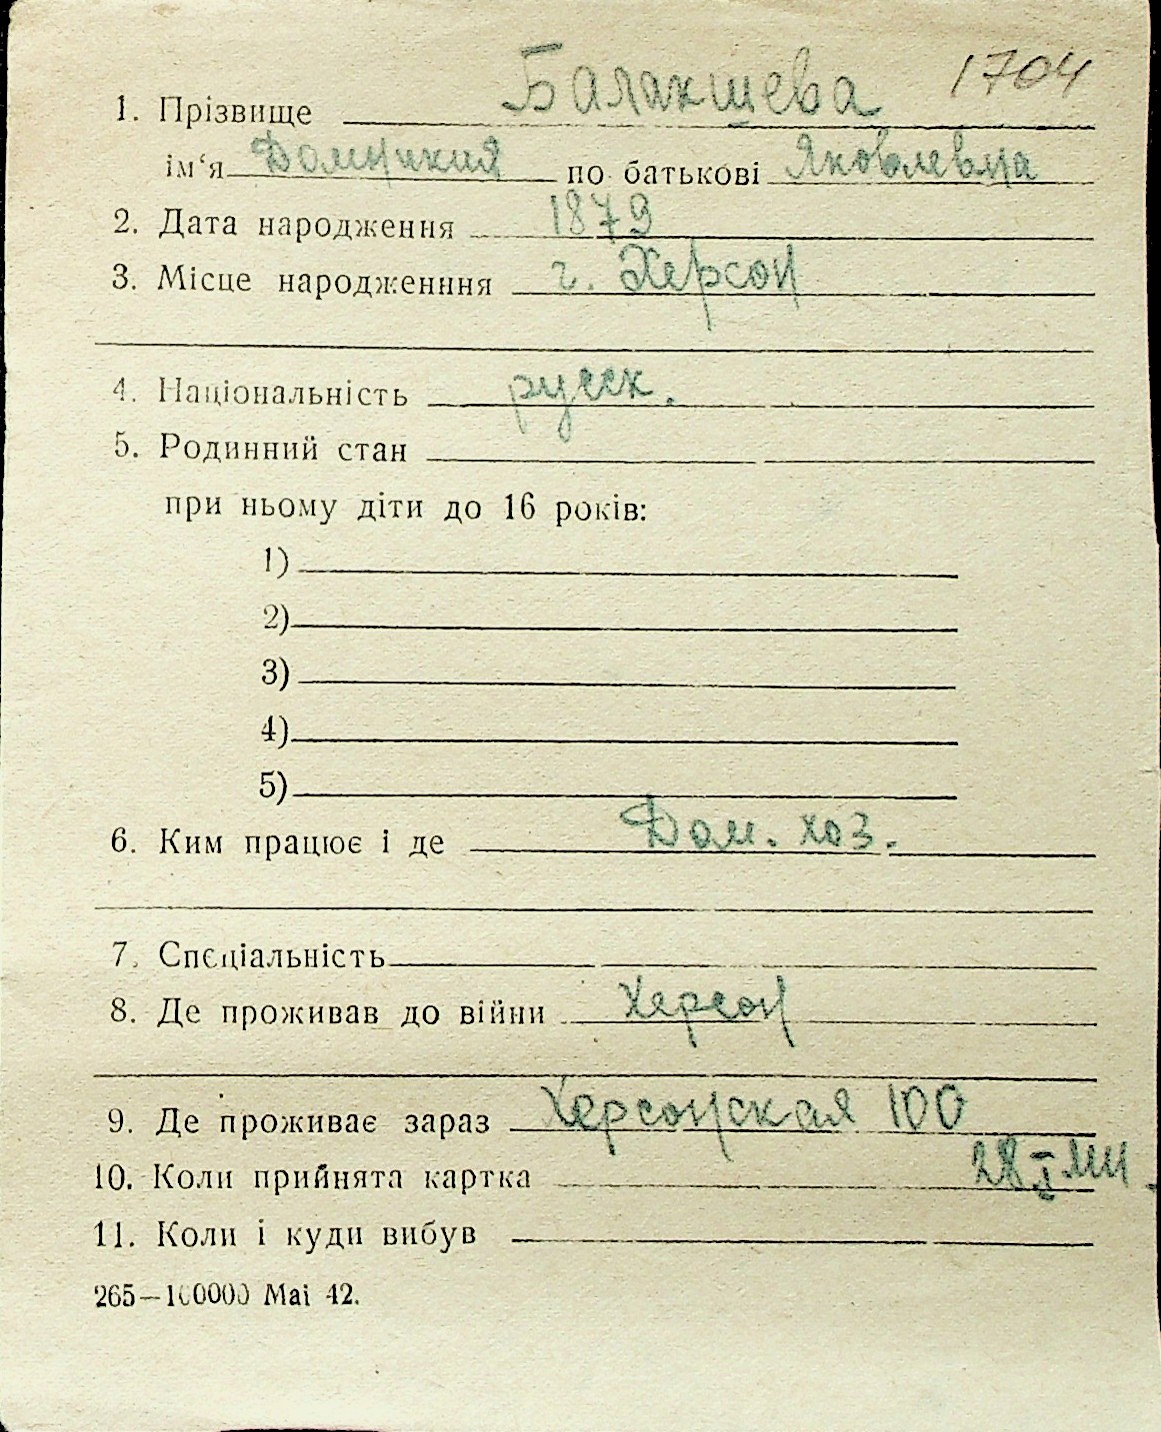 1704
1. Прізвище Балакшева
ім‘я Домникия по батькові Яковлевна
2. Дата народження 1879
3. Місце народженння г. Херсон
4. Національність русск.
5. Родинний стан
при ньому діти до 16 років:
1)
2)
3)
4)
5)
6. Ким працює і де Дом. хоз.
7. Спеціальність
8. Де проживав до війни Херсон
9. Де проживає зараз Херсонская 100
10. Коли прийнята картка 28 I
11. Коли і куди вибув
265—100000 Mai 42.